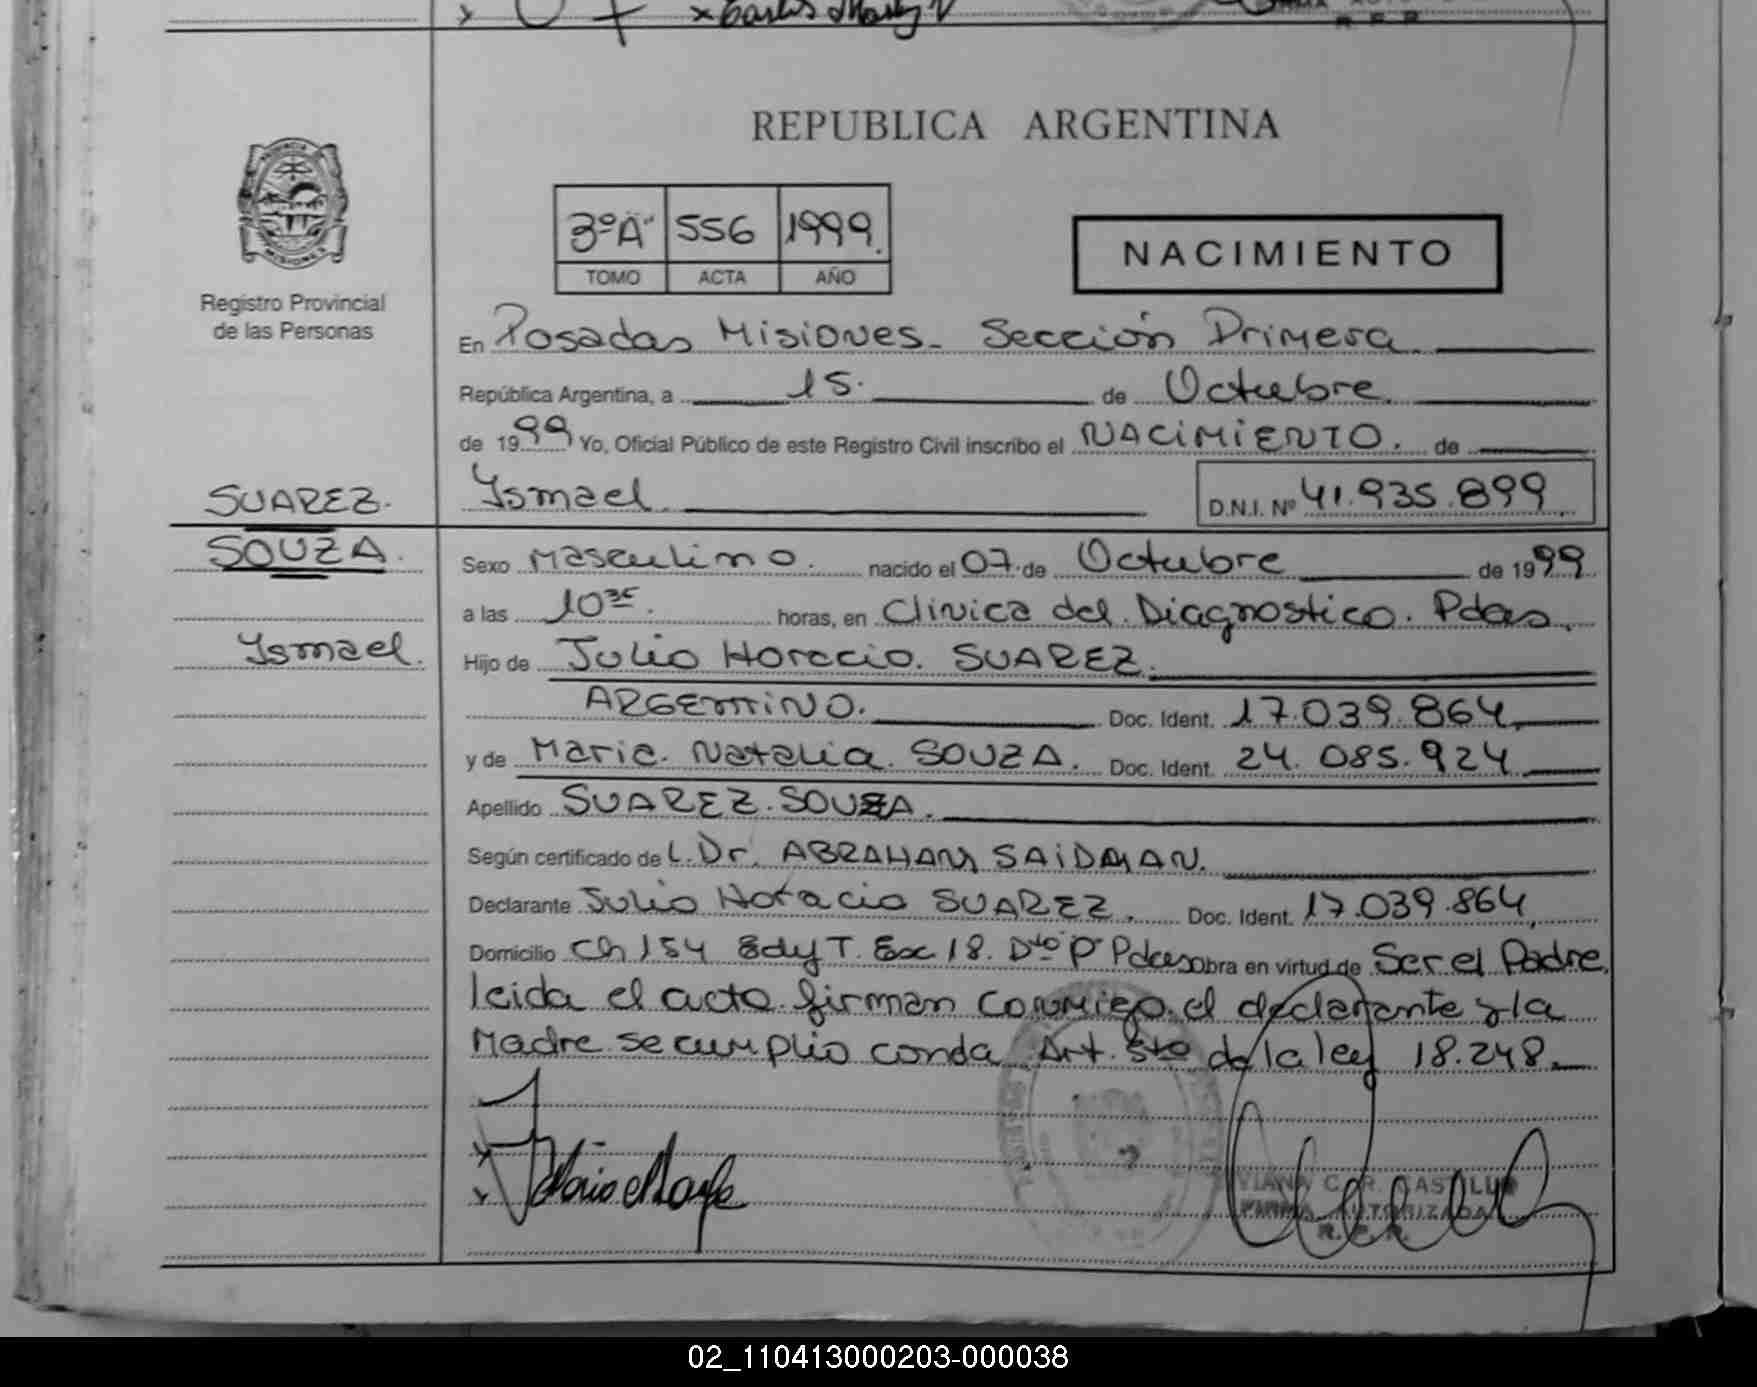 x Carlos
REPUBLICA ARGENTINA
3º"A" 556 1999.
TOMO ACTA AÑO
NACIMIENTO
PROVINCIA
MISIONES
Registro Provincial
de las Personas
En Posadas Misiones. Sección Primera
República Argentina, a 15. de Octubre.
de 1999 Yo, Oficial Público de este Registro Civil inscribo el NACIMIENTO. de
SUAREZ.
SOUZA.
Ismael.
Ismael. D.N.I. Nº 41.935.899
Sexo Masculino. nacido el 07. de Octubre de 1999
a las 10 35. horas, en Clinica del Diagnostico. Pdas.
Hijo de Julio Horacio. SUAREZ.
ARGENTINO. Doc. Ident. 17.039.864
y de Maria. Natalia. SOUZA. Doc. Ident. 24.085.924
Apellido SUAREZ. SOUZA.
Según certificado de L. Dr. ABRAHAM SAIDMAN.
Declarante Julio Horacio SUAREZ. Doc. Ident. 17.039.864
Domicilio Ch 154 Edf T. Esc 18. Dto P Pdas obra en virtud de Ser el Padre.
leida el acta firman conmigo el declarante y la
Madre se cumplio con da Art. 5to de la ley 18.248.
VIANA C. R. CASTILLO
FIRMA AUTORIZADA
R. P. P.
02_110413000203-000038